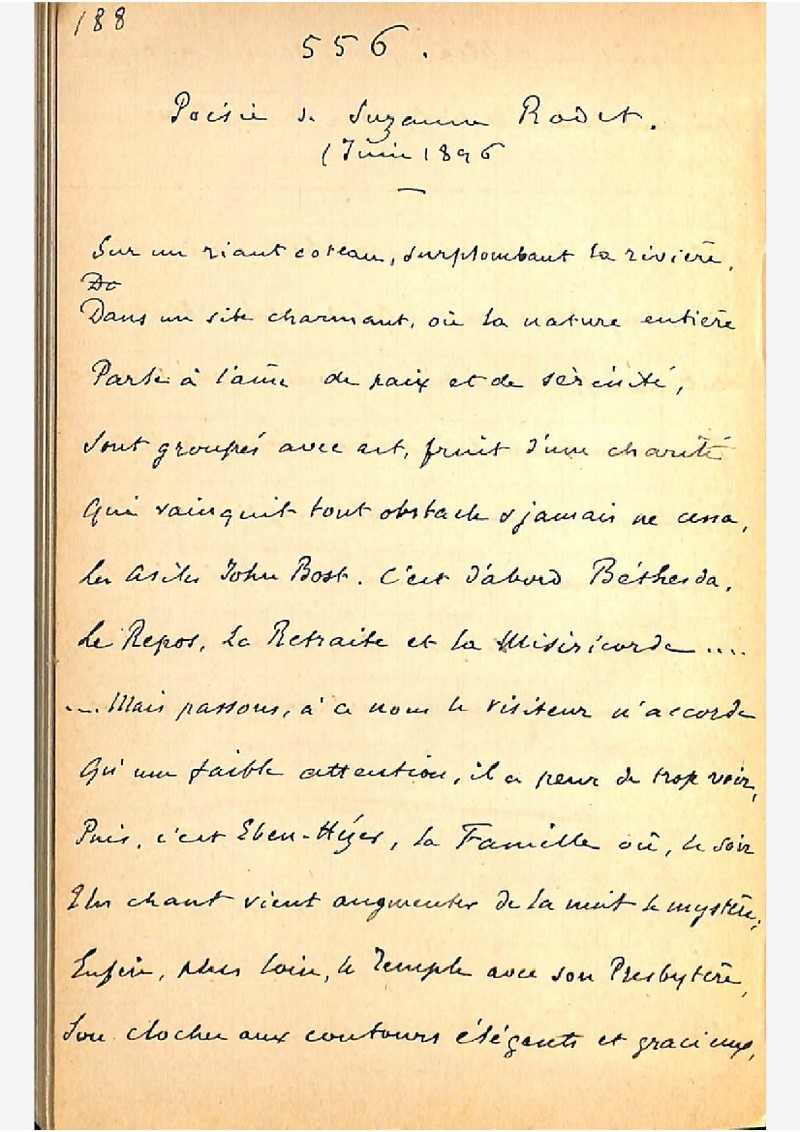 188
556.
Poésie de Suzanne Rodet.
1 Juin 1896
Sur un riant coteau, surplombant la rivière,
Da
Dans un site charmant, où la nature entière
Parle à l'âme de paix et de sérénité,
Sont groupés avec art, fruit d'une charité
Qui vainquit tout obstacle & jamais ne cessa,
Les Asiles John Bost. C'est d'abord Béthesda,
Le Repos, La Retraite et la Miséricorde ....
.... Mais passons, à ce nom le visiteur n'accorde
Qu'une faible attention, il a peur de trop voir,
Puis, c'est Eben-Hézer, la Famille où, le soir
Un chant vient augmenter de la nuit le mystère;
Enfin, plus loin, le Temple avec son Presbytère,
Son clocher aux contours élégants et gracieux,